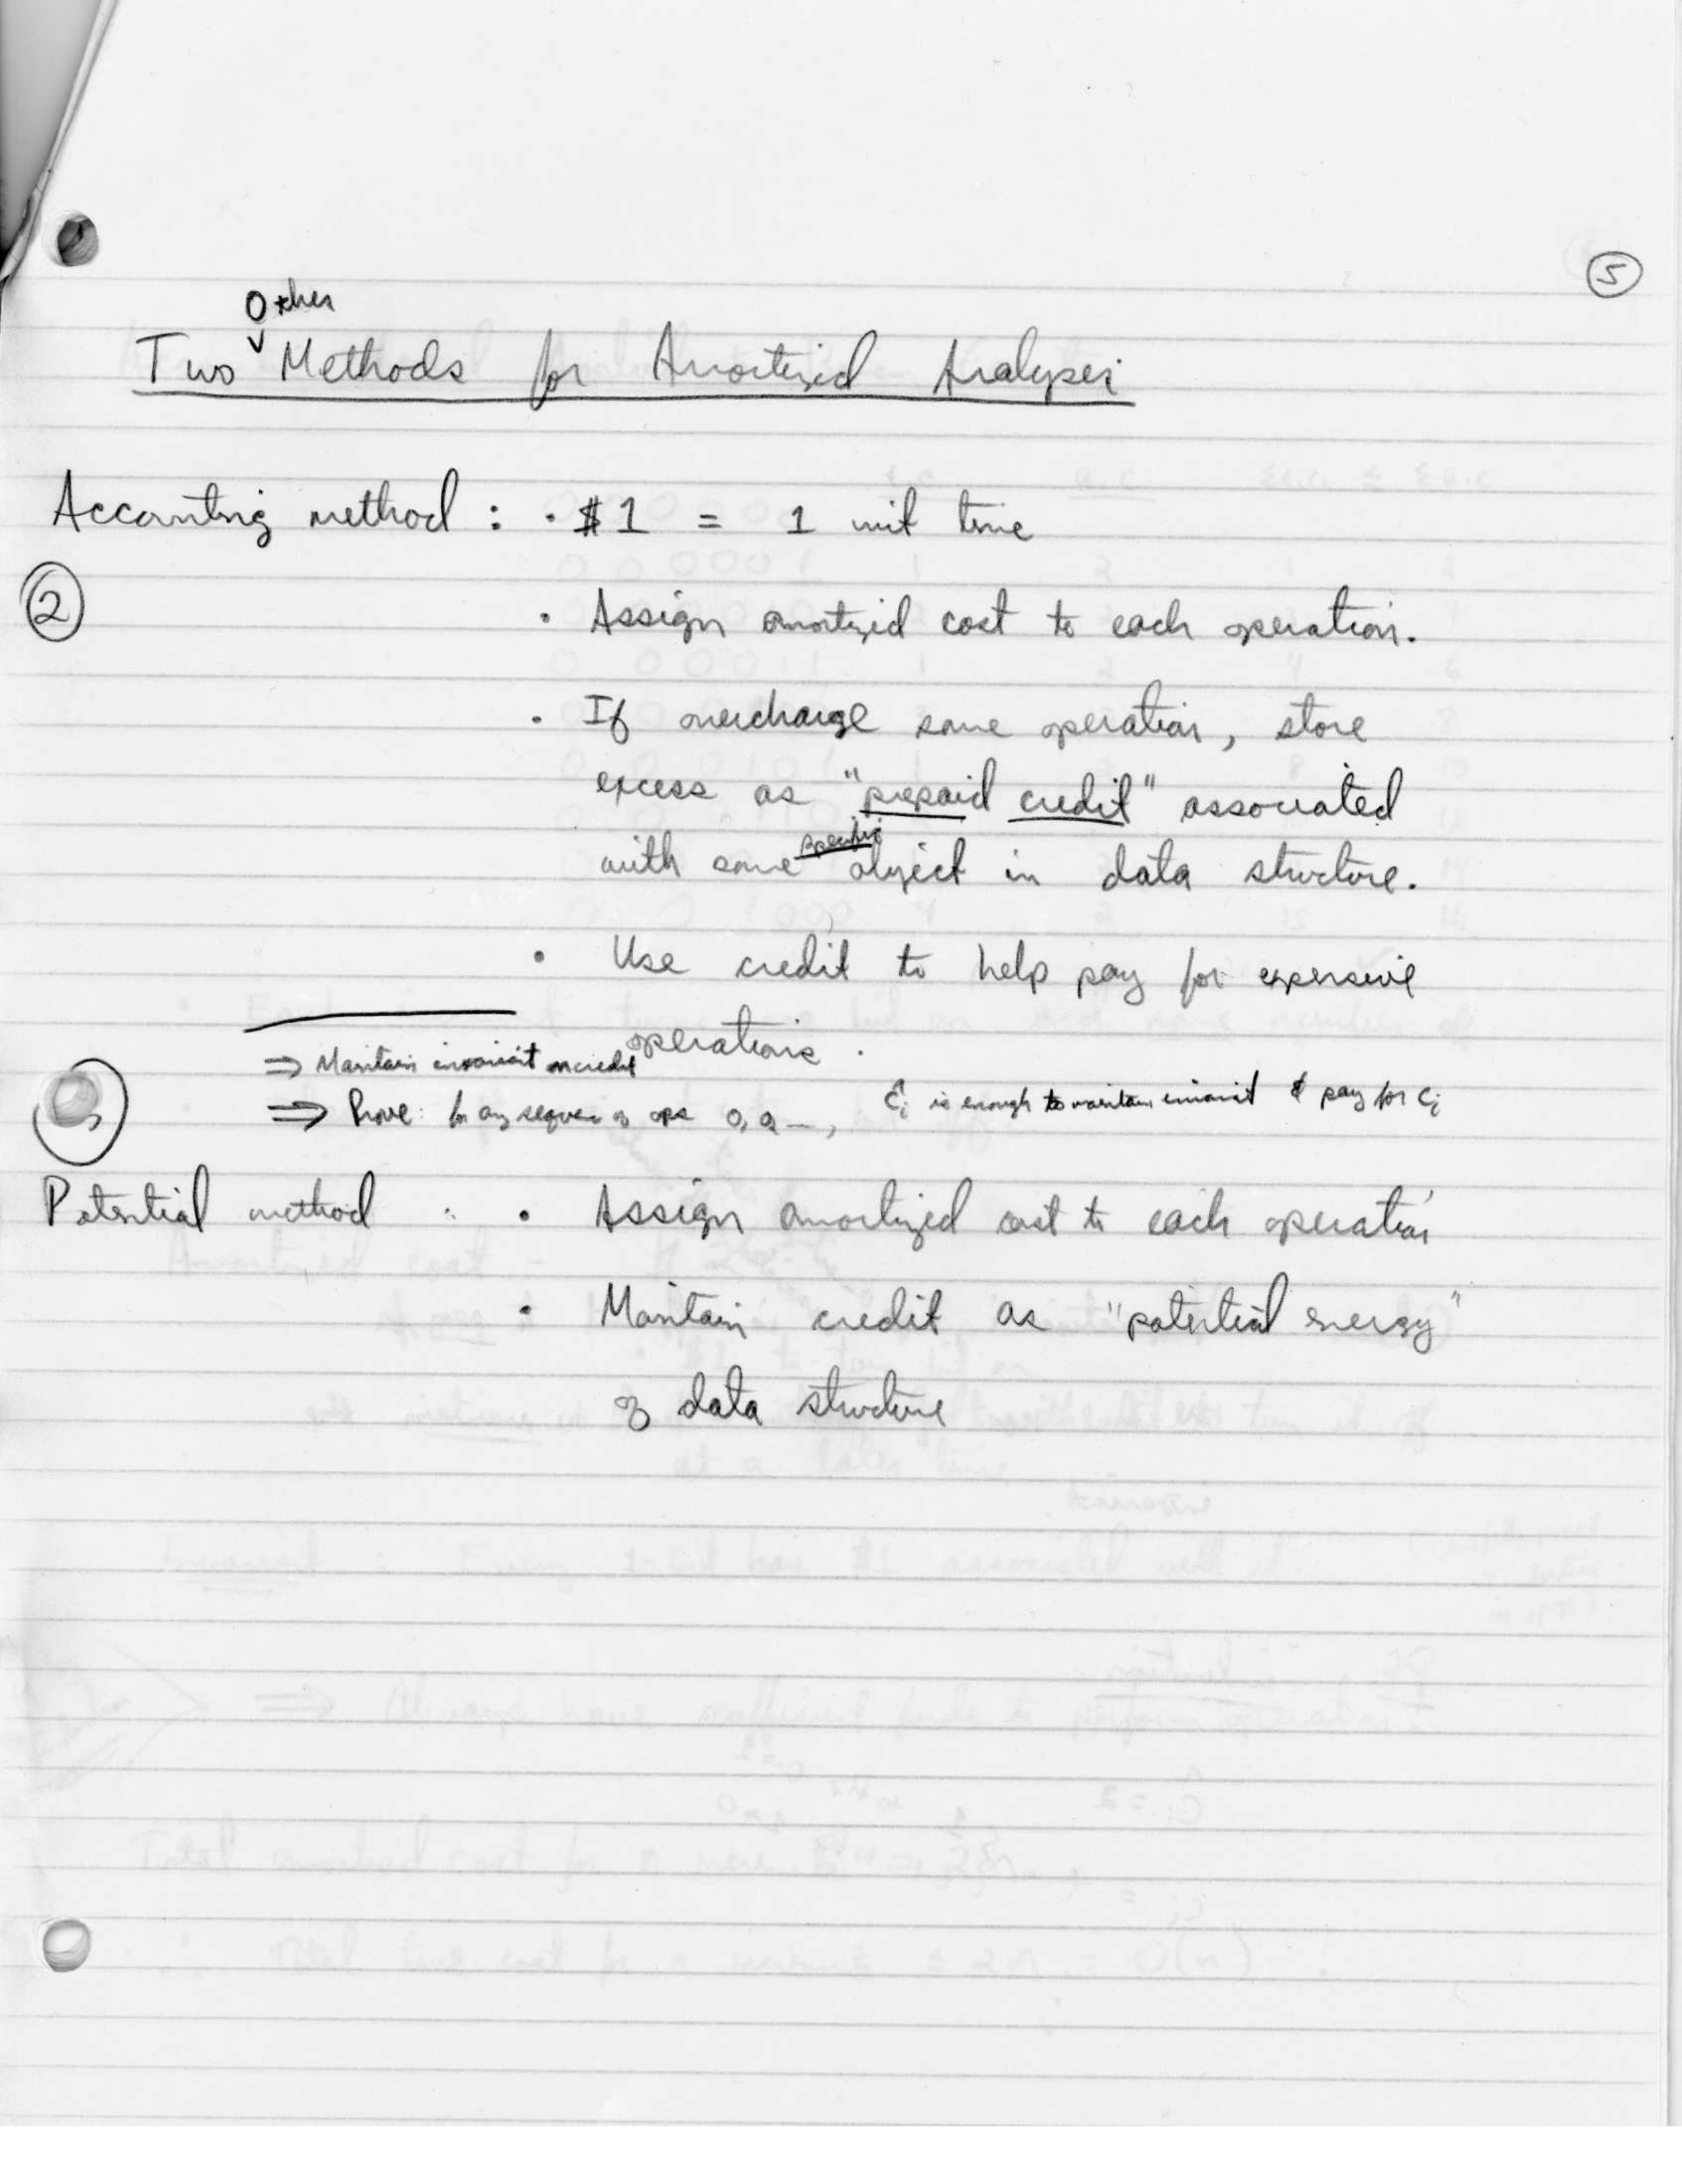 5
Other
Two Methods for Amortized Analysis
Accounting method : · $1 = 1 unit time
2
· Assign amortized cost to each operation.
· If overcharge some operation, store
excess as "prepaid credit" associated
specific
with some object in data structure.
· Use credit to help pay for expensive
operations.
⇒ Maintain invariant on credit
⇒ Prove: for any sequence of ops O, O, —, ĉi is enough to maintain invariant & pay for ci
3
Potential method : · Assign amortized cost to each operation
· Maintain credit as "potential energy"
of data structure